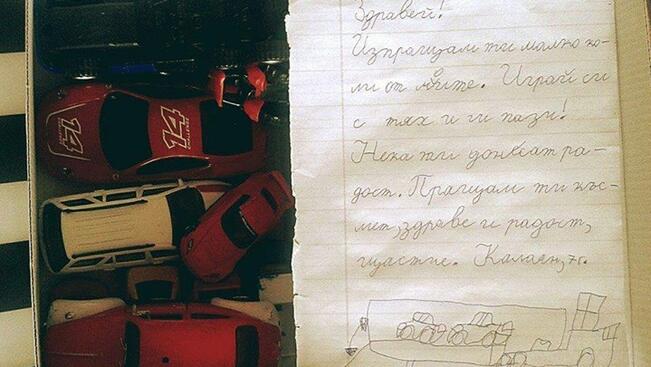 Здравей!
Изпращам ти малко ко-
ли от мойте. Играй си
с тях и ги пази!
Нека ти донесат ра-
дост. Пращам ти къс-
мет, здраве и радост,
щастие. Калоян, 7г.
14
14